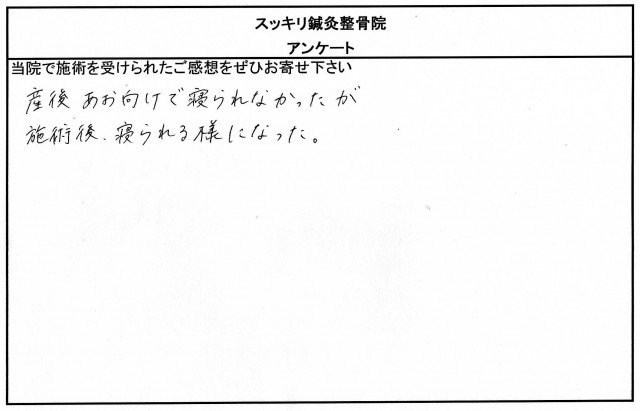 スッキリ鍼灸整骨院
アンケート
当院で施術を受けられたご感想をぜひお寄せ下さい
産後 あお向けで寝られなかったが
施術後、寝られる様になった。